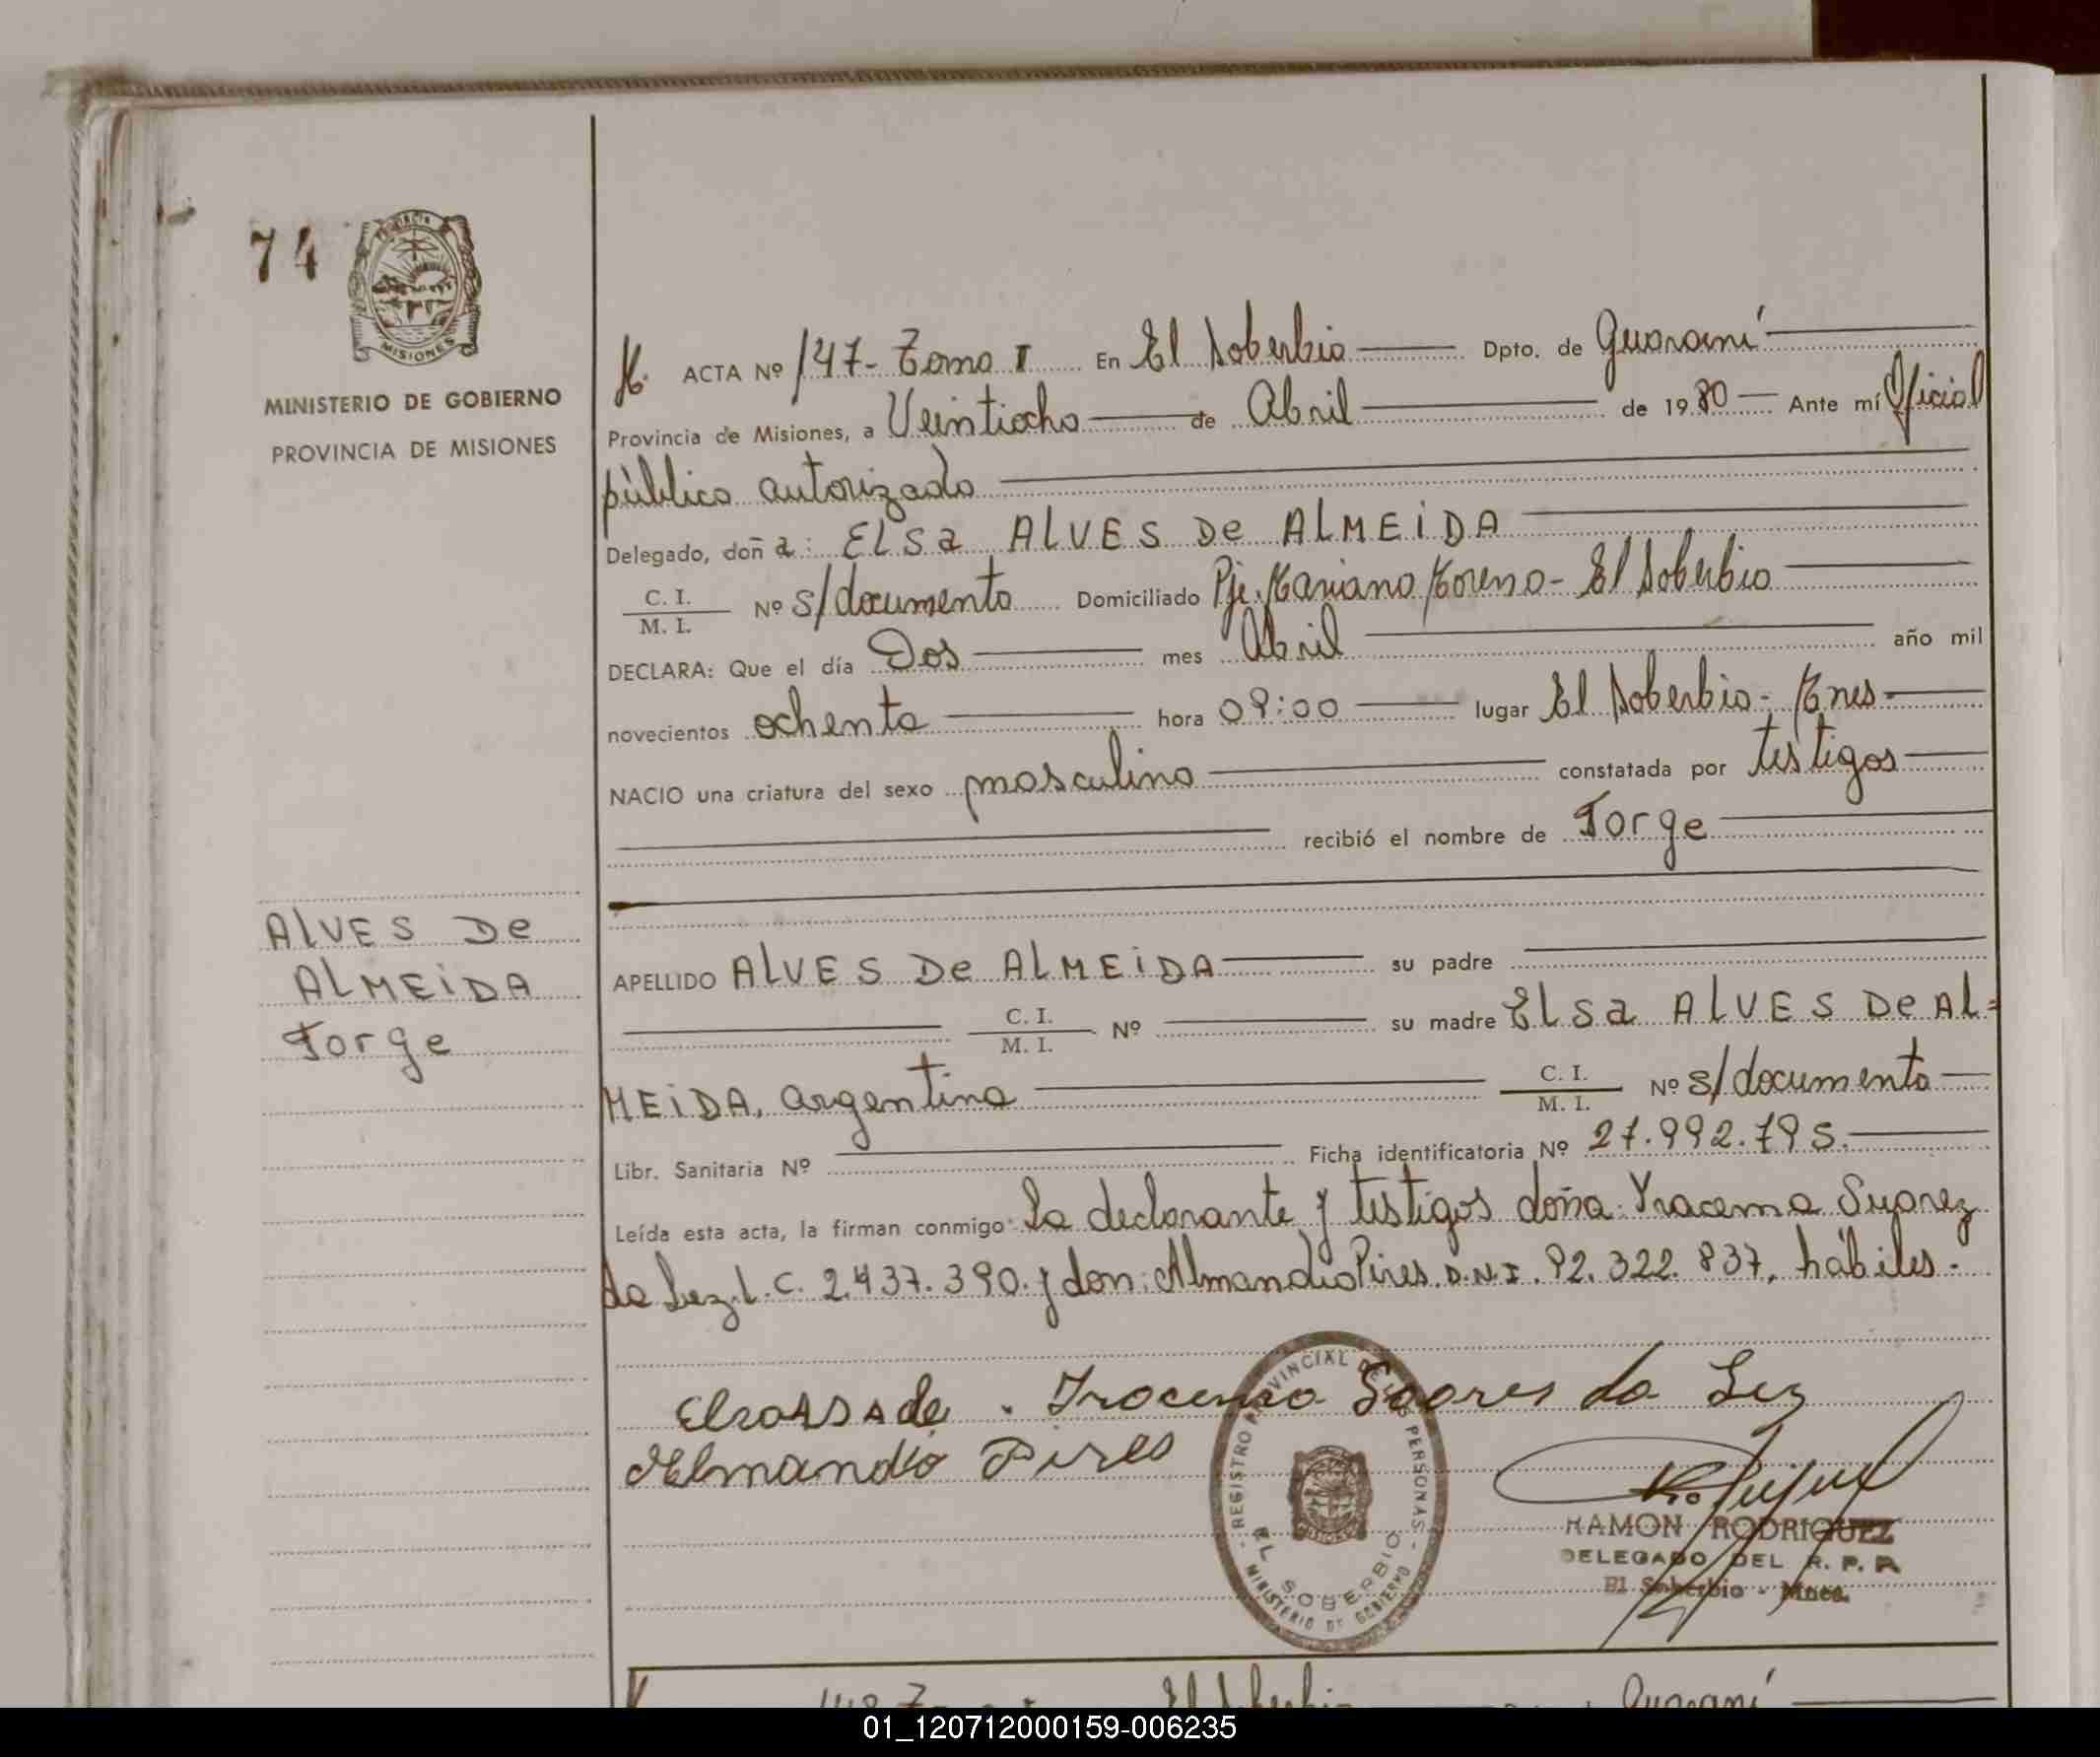 74
MISIONES
MINISTERIO DE GOBIERNO
PROVINCIA DE MISIONES
ALVES De
ALMEiDA
Jorge
ACTA Nº 147- Tomo I En El Soberbio Dpto. de Guaraní
Provincia de Misiones, a Veintiocho de Abril de 1980 Ante mí Oficial
público autorizado
Delegado, doña: ELSa ALVES De ALMEiDA
C. I.
M. I. Nº s/documento Domiciliado Pje. Mariano Moreno- El Soberbio
DECLARA: Que el día Dos mes Abril año mil
novecientos ochenta hora 09:00 lugar El Soberbio- Mnes-
NACIO una criatura del sexo masculino constatada por testigos
recibió el nombre de Jorge
APELLIDO ALVES De ALMEiDA su padre
C. I.
M. I. Nº su madre ELSa ALVES De AL=
MEiDA, argentina C. I.
M. I. Nº s/documento
Libr. Sanitaria Nº Ficha identificatoria Nº 27.992.795.
Leída esta acta, la firman conmigo: la declarante y testigos doña: Yracema Suarez
da Luz L.C. 2.437.390. y don: Almandio Pires D.N.I. 92.322.837, hábiles.-
Irocema Soares da Luz
Almandio Pires
REGISTRO PROVINCIAL DE LAS PERSONAS
EL SOBERBIO
MINISTERIO DE GOBIERNO
RAMON RODRIGUEZ
DELEGADO DEL R. P. P.
El Soberbio - Mnes.
148 El Soberbio Guaraní
01_120712000159-006235